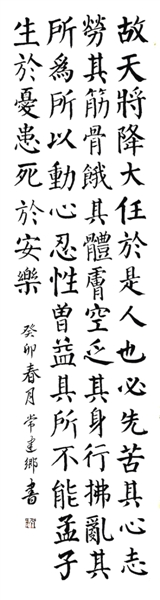 故天將降大任於是人也必先苦其心志
勞其筋骨餓其體膚空乏其身行拂亂其
所為所以動心忍性曽益其所不能孟子
生於憂患死於安樂
癸卯春月常建鄉書